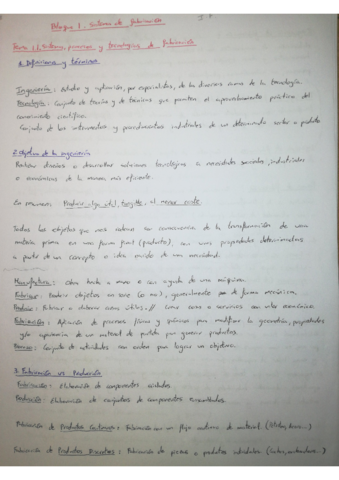 Bloque 1. Sistemas de fabricación
Tema 1.1. Sistemas, procesos y tecnologías de fabricación
1. Definiciones y términos
Ingeniería: Estudio y aplicación, por especialistas, de las diversas ramas de la tecnología.
Tecnología: Conjunto de teorías y de técnicas que permiten el aprovechamiento práctico del
conocimiento científico.
Conjunto de los instrumentos y procedimientos industriales de un determinado sector o producto
2. Objetivo de la ingeniería
Realizar diseños o desarrollar soluciones tecnológicas a necesidades sociales, industriales
o económicas de la manera más eficiente.
En resumen: Producir algo útil, tangible, al menor coste
Todos los objetos que nos rodean son consecuencia de la transformación de una
materia prima en una forma final (producto), con unas propiedades determinadas
a partir de un concepto o idea de una necesidad.
Manufactura: obra hecha a mano o con ayuda de una máquina.
Fabricar: Producir objetos en serie, generalmente por de forma mecánica.
Producir: Fabricar o elaborar cosas útiles // crear cosas o servicios con valor económico.
Fabricación: Aplicación de procesos físicos y químicos para modificar la geometría, propiedades
y/o apariencia de un material de partida para generar productos.
Proceso: Conjunto de actividades con orden para lograr un objetivo.
3. Fabricación vs Producción
Fabricación: Elaboración de componentes aislados
Producción: Elaboración de conjuntos de componentes ensamblados.
Fabricación de Productos Continuos: Fabricación con un flujo continuo de material.
Fabricación de Productos Discretos: Fabricación de piezas o productos individuales